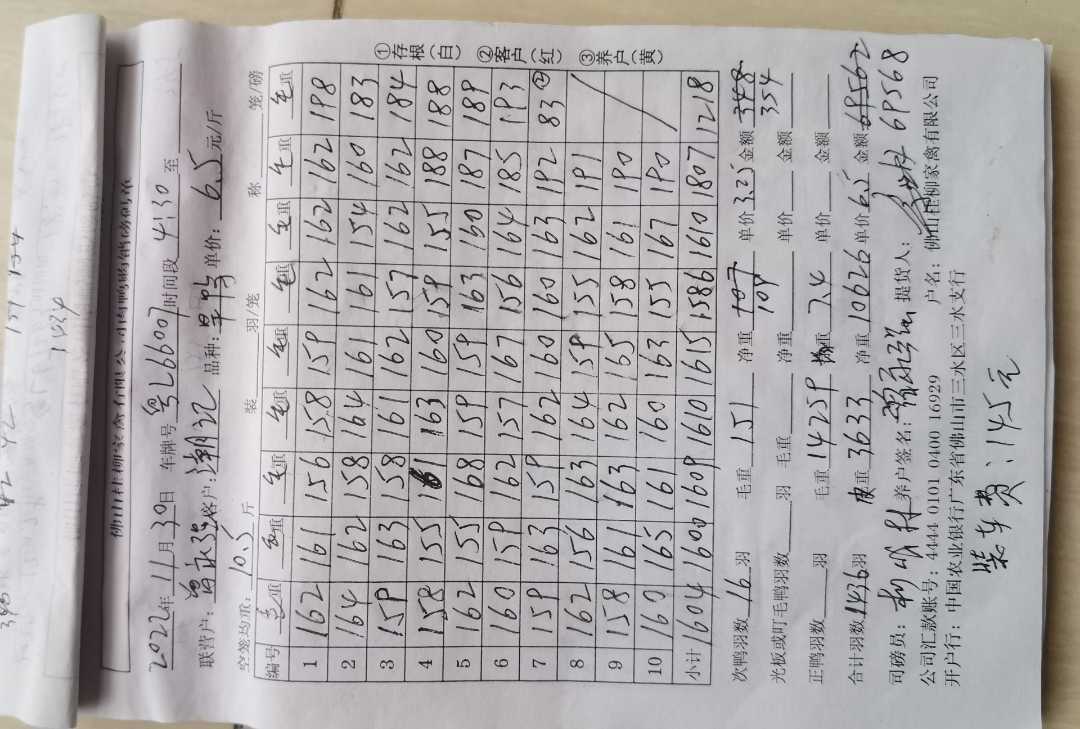 2022年11月30日 车牌号 粤L66007 时间段 4:30 至
联营户: 客户:潮记 品种: 单价: 6.5 元/斤
空笼均重: 10.5 斤 装 羽/笼 称 笼/磅
编号 毛重 毛重 毛重 毛重 毛重 毛重 毛重 毛重 毛重
1 162 161 156 158 159 162 162 162 198
2 164 162 158 164 161 161 154 160 183
3 159 163 158 161 162 157 162 162 184
4 158 155 161 163 160 159 155 188 188
5 162 155 168 159 159 163 160 187 189
6 160 159 162 157 167 156 164 185 193
7 159 163 159 162 160 160 163 192 83 ②
8 162 156 163 164 159 155 162 191
9 158 161 163 162 165 158 161 190
10 160 165 161 160 163 155 167 190
小计 1604 1600 1609 1610 1615 1586 1610 1807 1218
①存根(白) ②客户(红) ③养户(黄)
次鸭羽数 16 羽 毛重 151 净重 107 单价 3.25 金额 348
109 354
光板或叮毛鸭羽数 羽 毛重 净重 单价 金额
正鸭羽数 羽 毛重 14259 净重 7.4 单价 金额
合计羽数 1416 羽 皮重 3633 净重 10626 单价 6.5 金额 69562
司磅员: 养户签名: 提货人: 69568
公司汇款账号: 4444 0101 0400 16929 户名: 佛山桂柳家禽有限公司
开户行: 中国农业银行广东省佛山市三水区三水支行
装车费: 145元